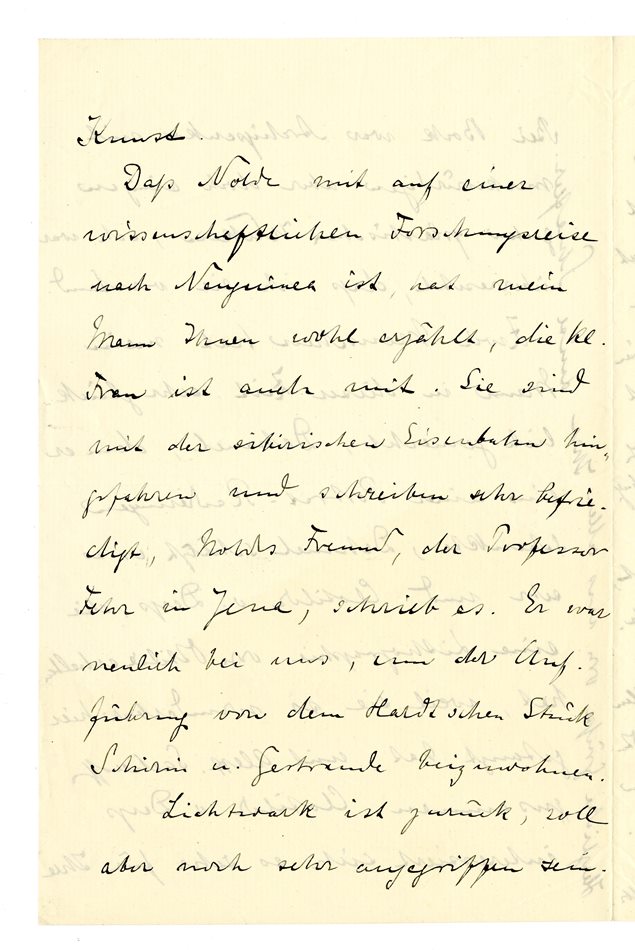 Kunst.
Daß Nolde mit auf einer
wissenschaftlichen Forschungsreise
nach Neuguinea ist, hat mein
Mann Ihnen wohl erzählt, die kl.
Frau ist auch mit. Sie sind
mit der sibirischen Eisenbahn hin-
gefahren und schreiben sehr befrie-
digt, Noldes Freund, der Professor
Fehr in Jena, schrieb es. Er war
neulich bei uns, um der Auf-
führung von dem Hardtschen Stück
Schirin u. Gertraude beizuwohnen.
Lichtwark ist zurück, soll
aber noch sehr angegriffen sein.